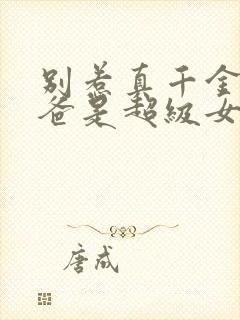 别惹真千金
爸是超级女
唐成